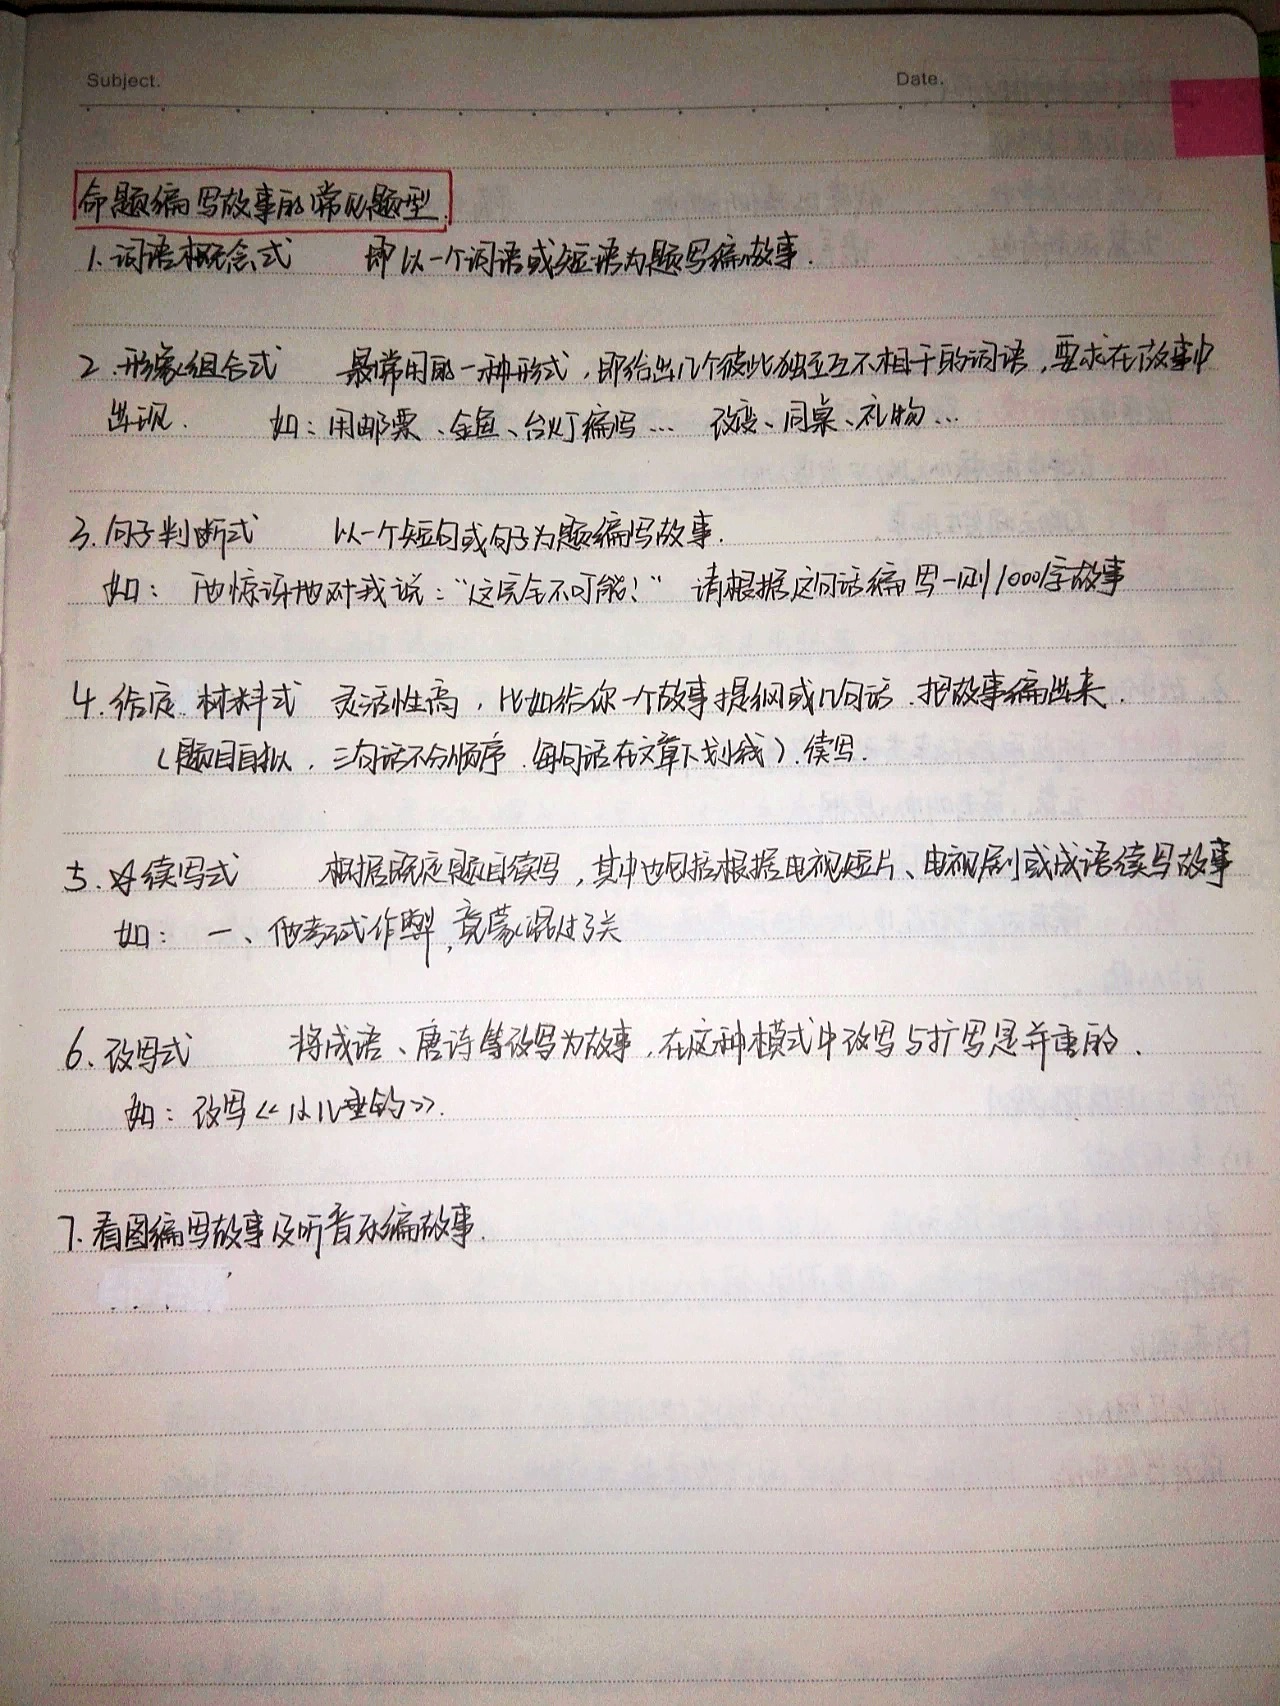 Subject.
Date.
命题编写故事的常见题型
1.词语概念式 即以一个词语或短语为题写编故事.
2.形象组合式 最常用的一种形式,即给出几个彼此独立互不相干的词语,要求在故事中
出现. 如:用邮票、金鱼、台灯编写… 改变、同桌、礼物…
3.句子判断式 以一个短句或句子为题编写故事.
如: 他惊讶地对我说:“这完全不可能!” 请根据这句话编写一则1000字故事
4.给定 材料式 灵活性高,比如给你一个故事提纲或几句话.把故事编出来.
(题目自拟,三句话不分顺序.每句话在文章下划线).续写.
5.续写式 根据既定题目续写,其中也包括根据电视短片、电视剧或成语续写故事
如: 一、他考试作弊,竟蒙混过了关
6.改写式 将成语、唐诗等改写为故事,在这种模式中改写与扩写是并重的.
如:改写《小儿垂钓》.
7.看图编写故事及听音乐编故事.